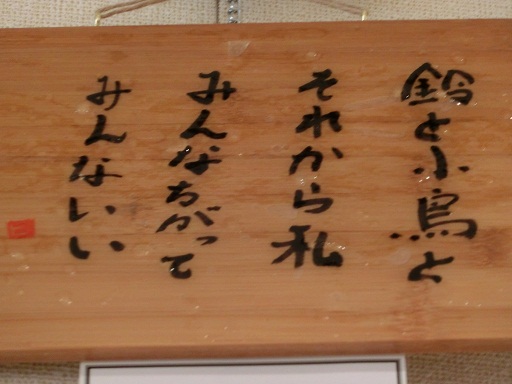 鈴と小鳥と
それから私
みんなちがって
みんないい